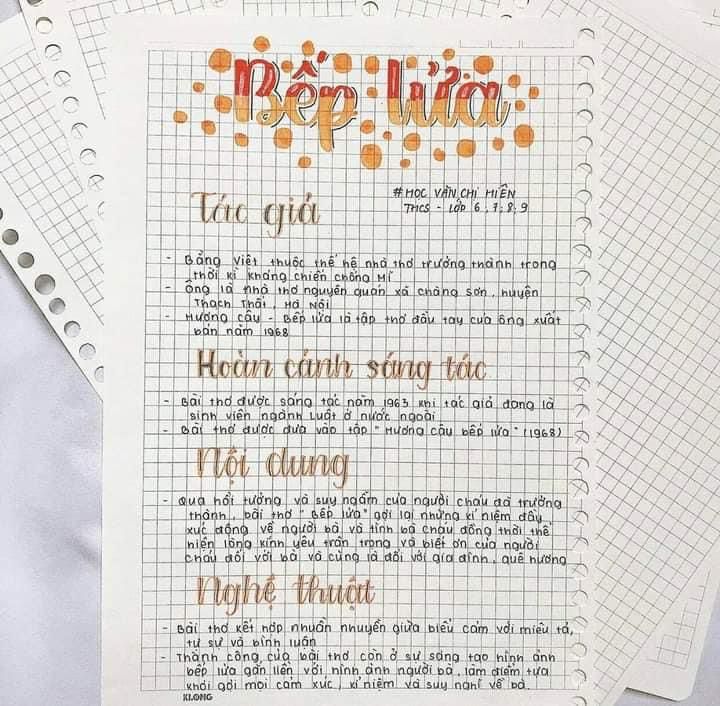 Bếp lửa
#HỌC VĂN CHỊ HIÊN
THCS - LỚP 6,7,8,9
Tác giả
- Bằng Việt thuộc thế hệ nhà thơ trưởng thành trong
thời kì kháng chiến chống Mĩ
- Ông là nhà thơ nguyên quán xã chàng sơn, huyện
Thạch Thất, Hà Nội
- Hương cây - Bếp lửa là tập thơ đầu tay của ông xuất
bản năm 1968
Hoàn cảnh sáng tác
- Bài thơ được sáng tác năm 1963 khi tác giả đang là
sinh viên ngành Luật ở nước ngoài
- Bài thơ được đưa vào tập "Hương cây bếp lửa" (1968)
Nội dung
- Qua hồi tưởng và suy ngẫm của người cháu đã trưởng
thành, bài thơ "Bếp lửa" gợi lại những kỉ niệm đầy
xúc động về người bà và tình bà cháu đồng thời thể
hiện lòng kính yêu trân trọng và biết ơn của người
cháu đối với bà và cũng là đối với gia đình, quê hương
Nghệ thuật
- Bài thơ kết hợp nhuần nhuyễn giữa biểu cảm với miêu tả,
tự sự và bình luận
- Thành công của bài thơ còn ở sự sáng tạo hình ảnh
bếp lửa gắn liền với hình ảnh người bà, làm điểm tựa
khơi gợi mọi cảm xúc, kỉ niệm và suy nghĩ về bà.
KLONG